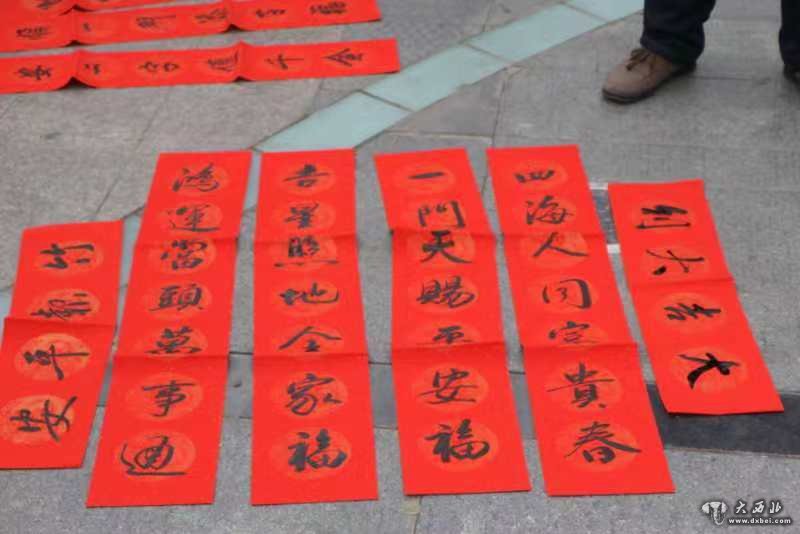 竹報平安
鴻運當頭萬事通
吉星照地全家福
一門天賜平安福
四海人同富貴春
大吉大利
大西北
www.dxbei.com